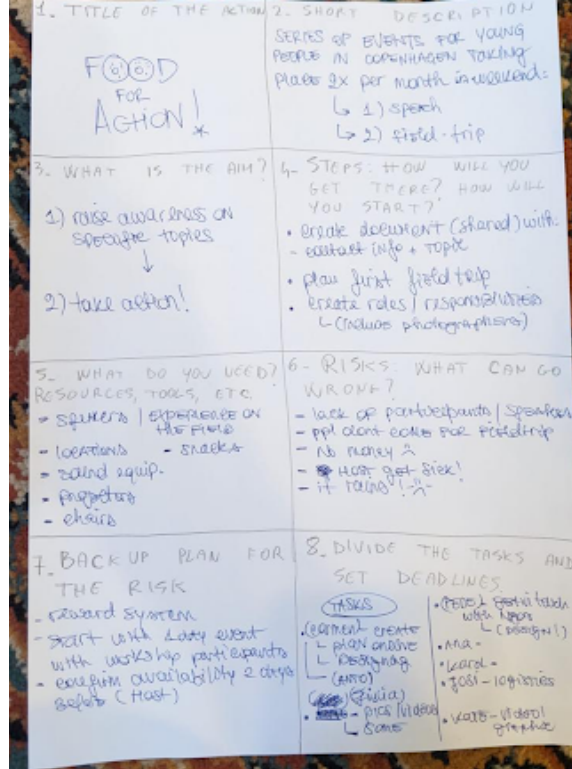 1. TITLE OF THE ACTION
FOOD
FOR
ACTION!
2. SHORT DESCRIPTION
SERIES OF EVENTS FOR YOUNG
PEOPLE IN COPENHAGEN TAKING
place 2x per month in weekend:
↳ 1) speech
↳ 2) field-trip
3. WHAT IS THE AIM?
1) raise awareness on
specific topics
↓
2) take action!
4- STEPS: HOW WILL YOU
GET THERE? HOW WILL
YOU START?
• create document (shared) with:
- contact info + topic
• plan first field trip
• create roles / responsibilities
↳ (include photographers)
5- WHAT DO YOU NEED?
RESOURCES, TOOLS, ETC.
- speakers | EXPERIENCE ON
THE FIELD
- locations - snacks
- sound equip.
- projectors
- chairs
6- RISKS: WHAT CAN GO
WRONG?
- lack of participants / speakers
- ppl dont come FOR Fieldtrip
- no money
- Host get sick!
- it rains!
7. BACK UP PLAN FOR
THE RISK
- reward system
- start with 1 day event
with workshop participants
- confirm availability 2 days
before (Host)
8. DIVIDE THE TASKS AND
SET DEADLINES
TASKS
create
plan
Designing
- pics / videos
in touch
with
(DESIGN!)
• Ana -
• Karol -
• Josi - logistics
video/
graphic